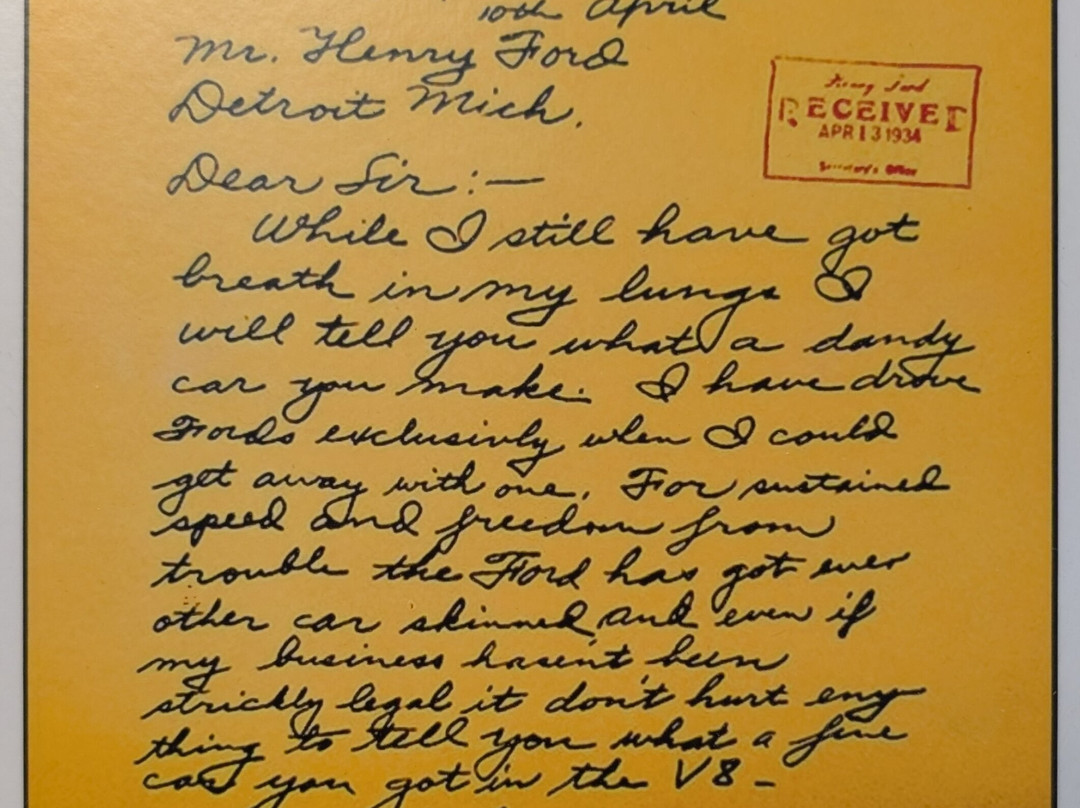 10th April
Mr. Henry Ford
Detroit Mich.
Henry Ford
RECEIVED
APR 13 1934
Secretary's Office
Dear Sir:—
While I still have got
breath in my lungs I
will tell you what a dandy
car you make. I have drove
Fords exclusivly when I could
get away with one. For sustained
speed and freedom from
trouble the Ford has got ever
other car skinned, and even if
my business hasen't been
strickly legal it don't hurt eny
thing to tell you what a fine
car you got in the V8 –